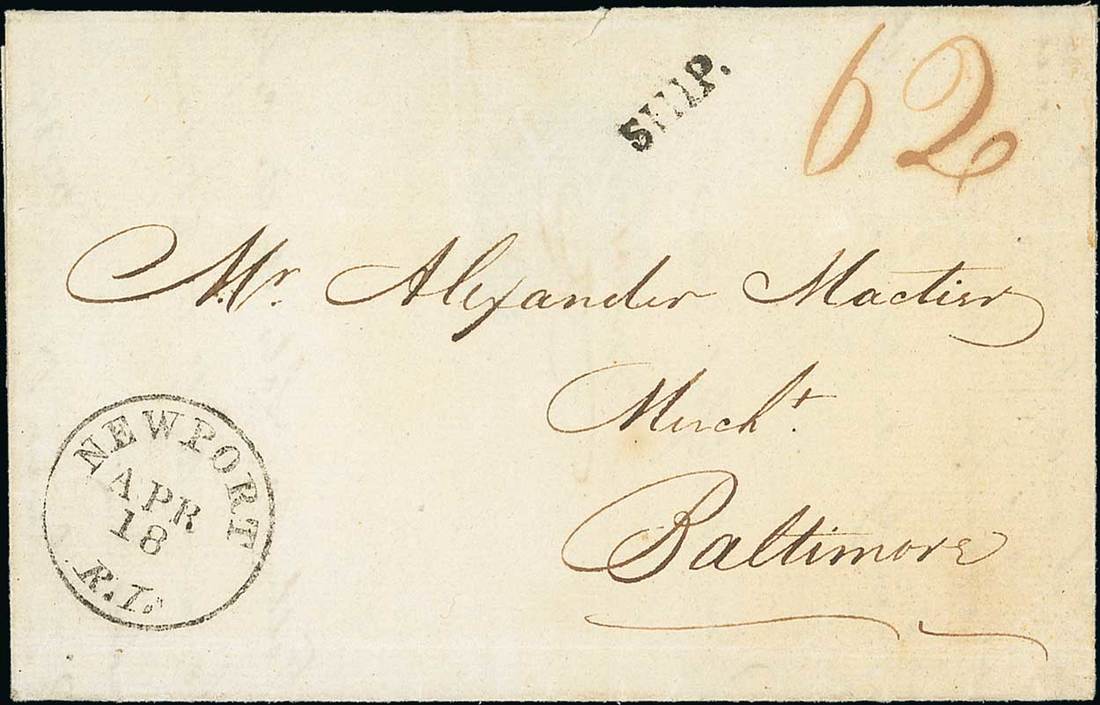 SHIP.
62
Mr. Alexander Mactier
Mercht.
Baltimore
NEWPORT
APR
18
R.I.